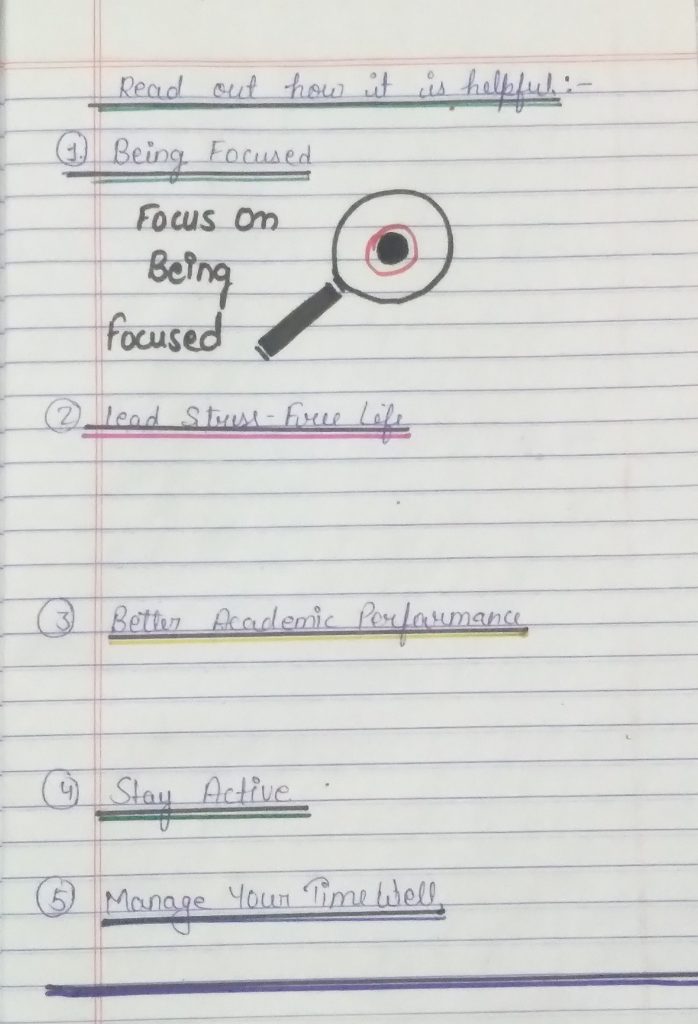 Read out how it is helpful:-
1. Being Focused
Focus on
Being
focused
2 Lead Stress-Free Life
3 Better Academic Performance
4 Stay Active
5 Manage Your Time Well